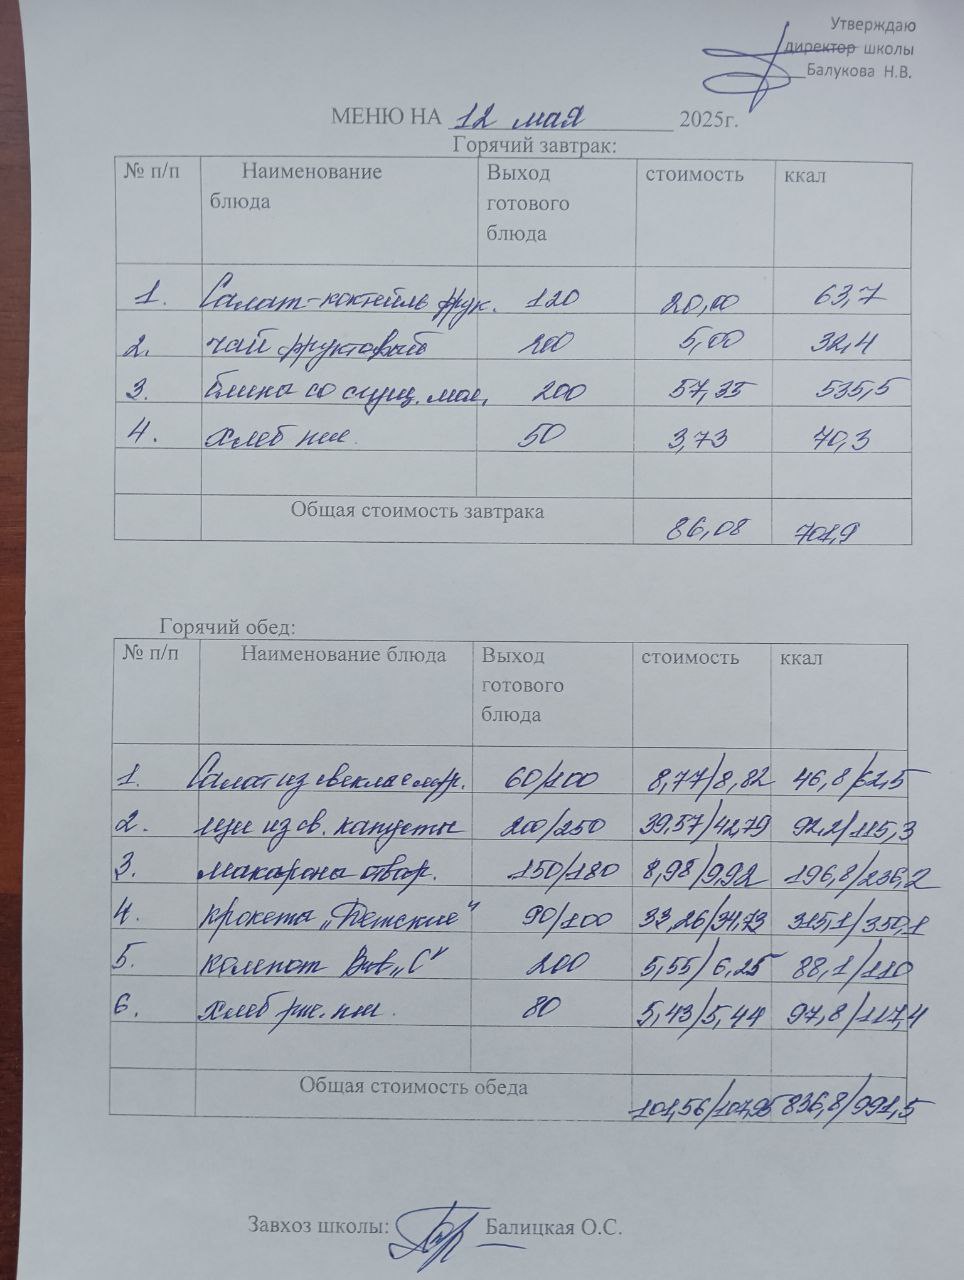 Утверждаю
директор школы
Балукова Н.В.
МЕНЮ НА 12 мая 2025г.
Горячий завтрак:
№ п/п Наименование блюда Выход готового блюда стоимость ккал
1. Салат-коктейль фрук. 120 20,00 63,7
2. чай фруктовый 200 5,00 32,4
3. блины со сгущ. мол. 200 57,35 535,5
4. хлеб пш. 50 3,73 70,3
Общая стоимость завтрака 86,08 701,9
Горячий обед:
№ п/п Наименование блюда Выход готового блюда стоимость ккал
1. Салат из свеклы с 60/100 8,77/8,82 46,8/62,5
2. щи из св. капусты 200/250 39,57/42,79 92,2/115,3
3. макароны отвар. 150/180 8,98/9,92 196,8/236,2
4. крокеты „Детские" 90/100 33,26/34,73 315,1/350,1
5. компот Вит„С" 200 5,55/6,25 88,1/110
6. хлеб рж. пш. 80 5,43/5,44 97,8/117,4
Общая стоимость обеда 101,56/107,95 836,8/991,5
Завхоз школы: Балицкая О.С.